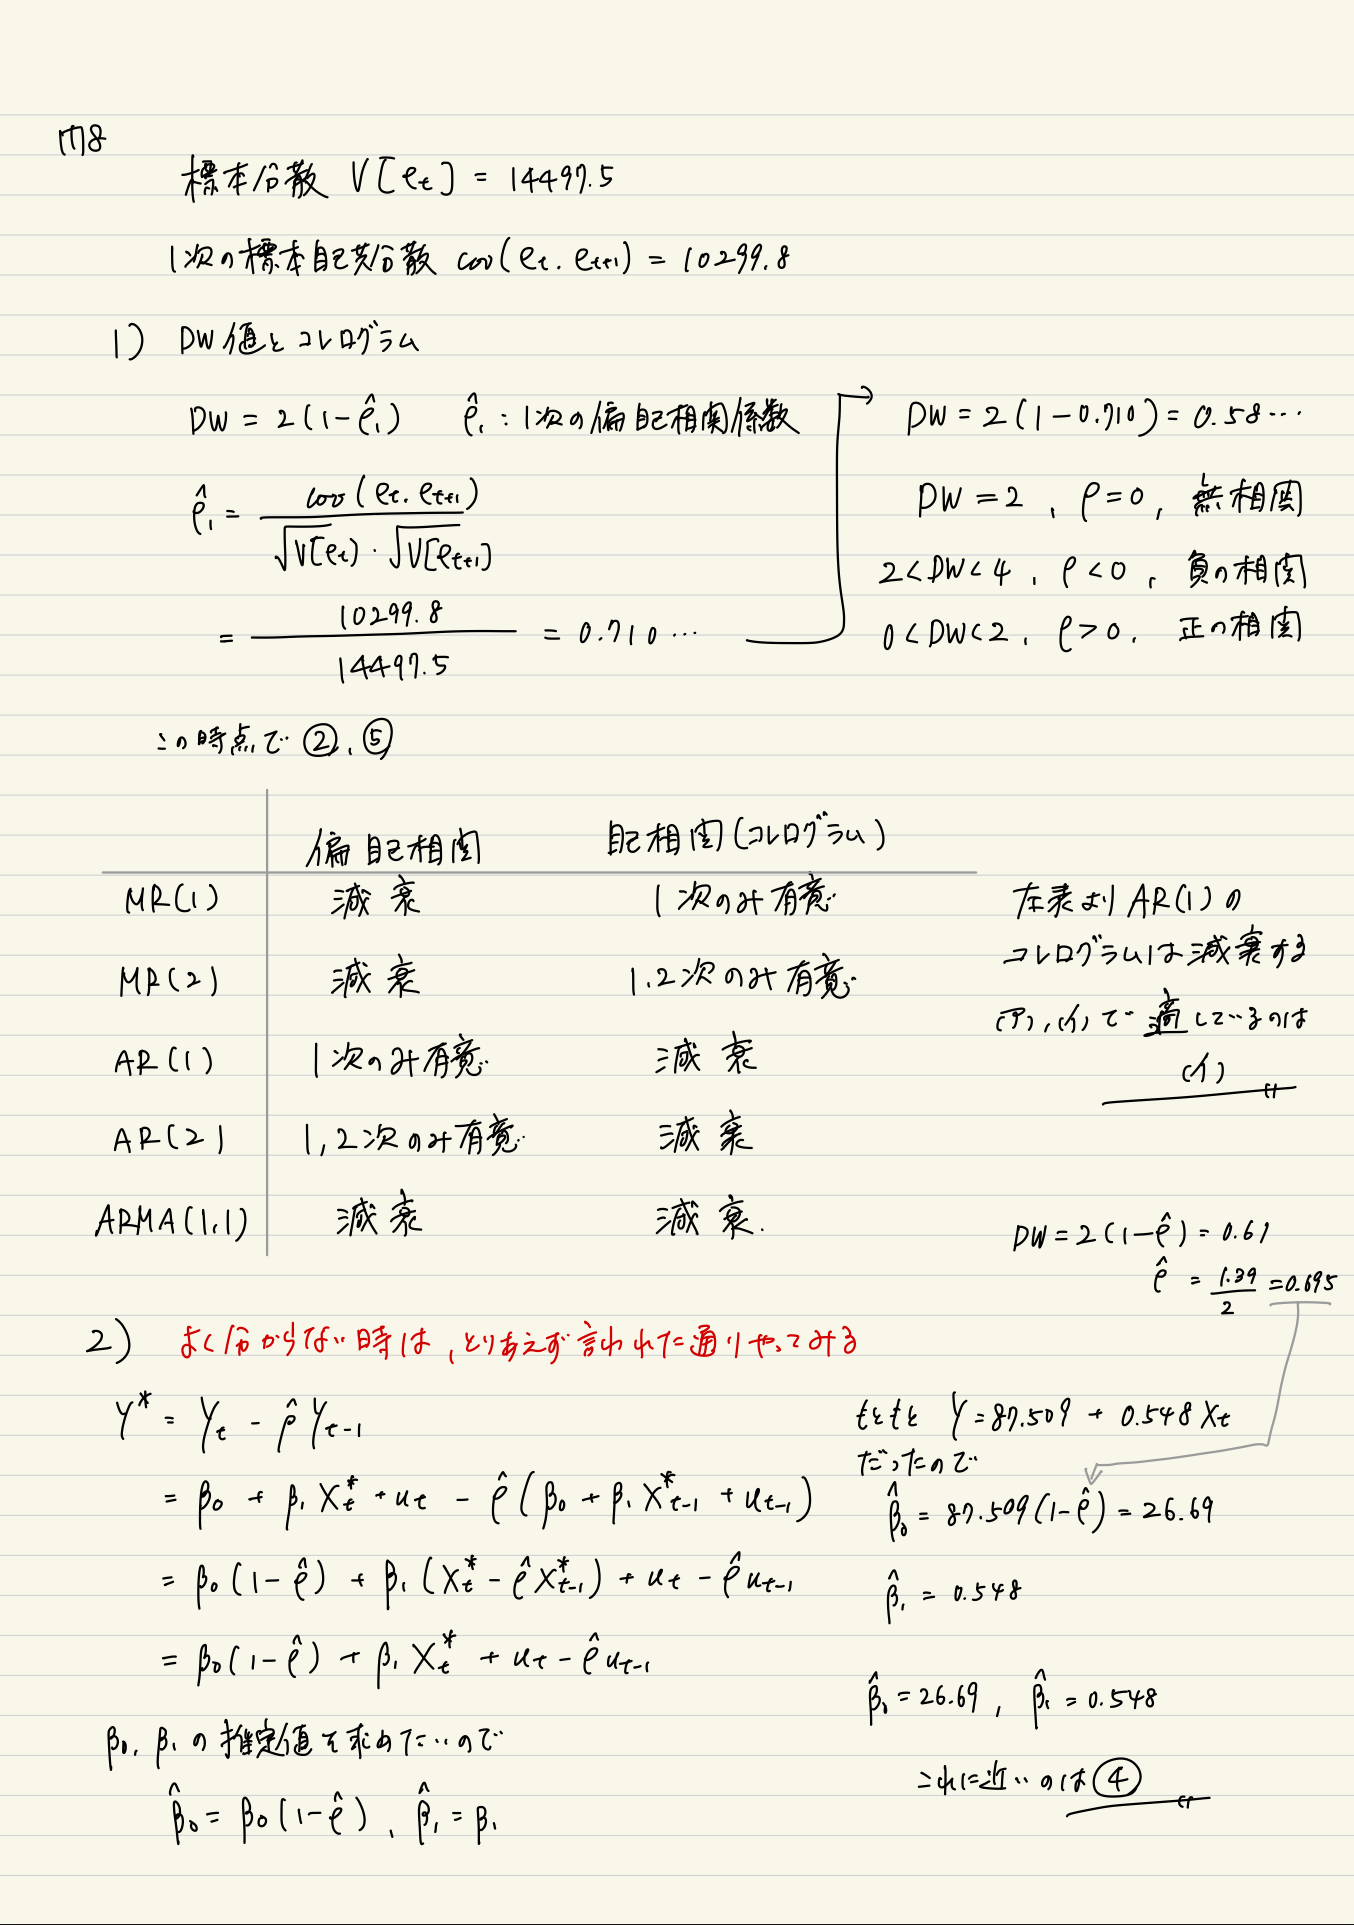 問8
標本分散 V[et] = 14497.5
1次の標本自己共分散 cov(et. et+1) = 10299.8
1) DW値とコレログラム
DW = 2(1-ρ̂₁) ρ̂₁ : 1次の偏自己相関係数
ρ̂₁ = cov(et. et+1) / √V[et) · √V[et+1]
= 10299.8 / 14497.5 = 0.710…
DW = 2(1-0.710) = 0.58…
DW = 2 , ρ=0 , 無相関
2<DW<4 , ρ<0 , 負の相関
0<DW<2 , ρ>0 , 正の相関
この時点で ②, ⑤
偏自己相関 自己相関(コレログラム)
MR(1) 減衰 1次のみ有意
MR(2) 減衰 1.2次のみ有意
AR(1) 1次のみ有意 減衰
AR(2) 1,2次のみ有意 減衰
ARMA(1,1) 減衰 減衰.
左表よりAR(1)の
コレログラムは減衰する
(ア),(イ)で適しているのは
(イ)
DW = 2(1-ρ̂) = 0.61
ρ̂ = 1.39/2 = 0.695
2) よく分からない時は,とりあえず言われた通りやってみる
Y* = Yt - ρ̂Yt-1
= β₀ + β₁Xt* + ut - ρ̂(β₀ + β₁X*t-1 + ut-1)
= β₀(1-ρ̂) + β₁(Xt* - ρ̂X*t-1) + ut - ρ̂ut-1
= β₀(1-ρ̂) + β₁Xt* + ut - ρ̂ut-1
β₀, β₁の推定値を求めたいので
β̂₀ = β₀(1-ρ̂) , β̂₁ = β₁
もともと Y = 87.509 + 0.548Xt
だったので
β̂₀ = 87.509(1-ρ̂) = 26.69
β̂₁ = 0.548
β̂₀ = 26.69 , β̂₁ = 0.548
これに近いのは④